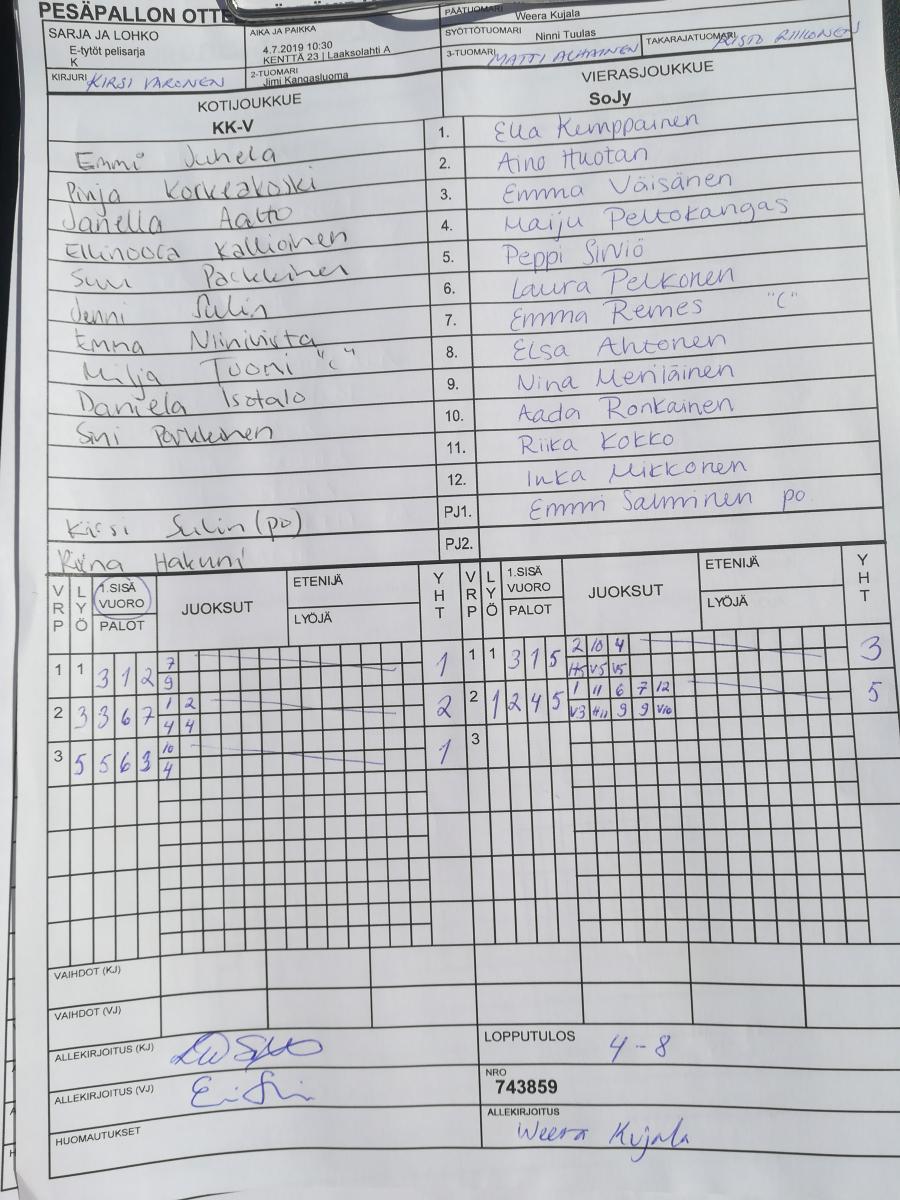 PESÄPALLON OTTE
SARJA JA LOHKO
E-tytöt pelisarja
K
AIKA JA PAIKKA
4.7.2019 10:30
KENTTÄ 23 | Laaksolahti A
PÄÄTUOMARI
Weera Kujala
SYÖTTÖTUOMARI
Ninni Tuulas
KIRJURI KIRSI VARONEN
2-TUOMARI
Jimi Kangasluoma
3-TUOMARI MATTI
TAKARAJATUOMARI RISTO RIIKONEN
KOTIJOUKKUE
KK-V
VIERASJOUKKUE
SoJy
Emmi Juhela 1. Ella Kemppainen
Pinja Korkeakoski 2. Aino Huotari
Janella Aalto 3. Emma Väisänen
Ellinoora Kallioinen 4. Maiju Peltokangas
Suvi 5. Peppi Sirviö
Jenni Sulin 6. Laura Pelkonen
Emma Niinivirta 7. Emma Remes "C"
Milja Tuoni "c" 8. Elsa Ahtonen
Daniela Isotalo 9. Nina Meriläinen
Sini Parkkonen 10. Aada Ronkainen
11. Riika Kokko
12. Inka Mikkonen
Kirsi Sulin (po) PJ1. Emmi Salminen po
Hakuni PJ2.
VRP LYÖ 1.SISÄ VUORO PALOT JUOKSUT ETENIJÄ LYÖJÄ YHT VRP LYÖ 1.SISÄ VUORO PALOT JUOKSUT ETENIJÄ LYÖJÄ YHT
1 1 3 1 2 7 1 1 1 3 1 5 2 10 4 3
9 H5 V5 V5
2 3 3 6 7 1 2 2 2 1 2 4 5 1 11 6 7 12 5
4 4 V3 H11 9 9 V10
3 5 5 6 3 10 1 3
4
VAIHDOT (KJ)
VAIHDOT (VJ)
ALLEKIRJOITUS (KJ)
LOPPUTULOS 4-8
ALLEKIRJOITUS (VJ)
NRO
743859
HUOMAUTUKSET
ALLEKIRJOITUS
Weera Kujala